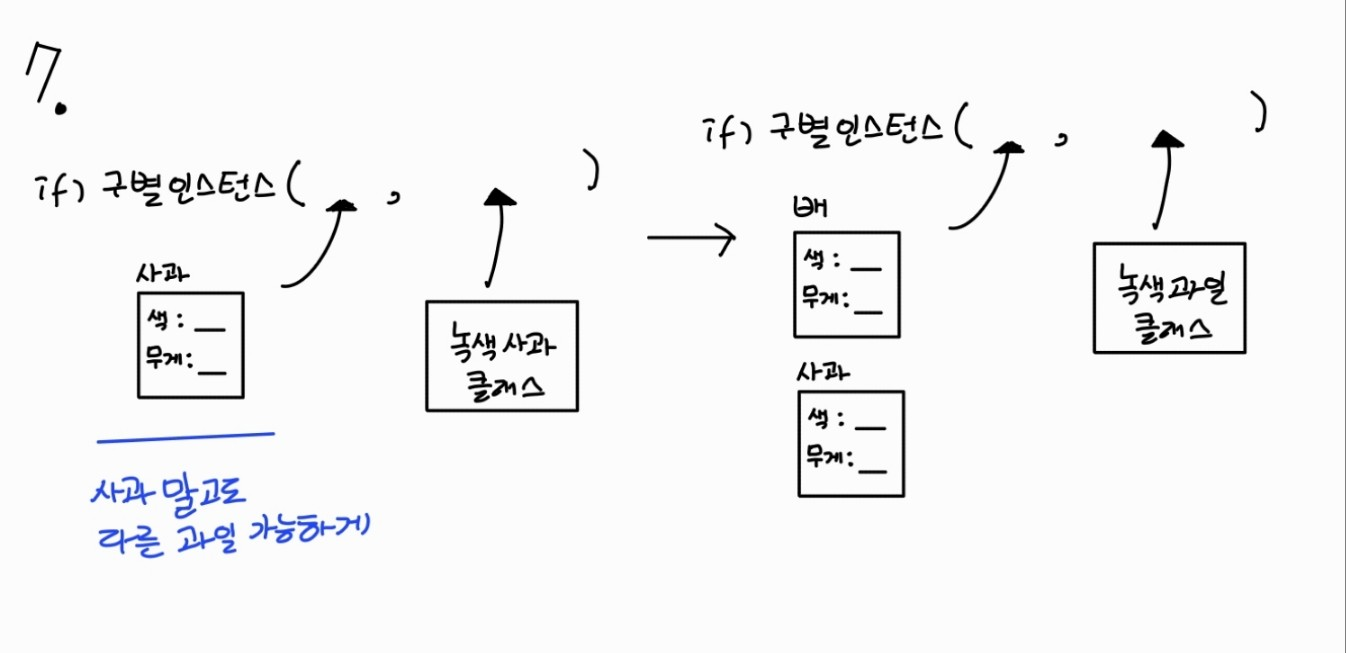 7.
if) 구별인스턴스( , )
사과
색 : __
무게: __
녹색 사과
클래스
사과 말고도
다른 과일 가능하게
if) 구별인스턴스( , )
배
색 : __
무게: __
사과
색 : __
무게: __
녹색 과일
클래스